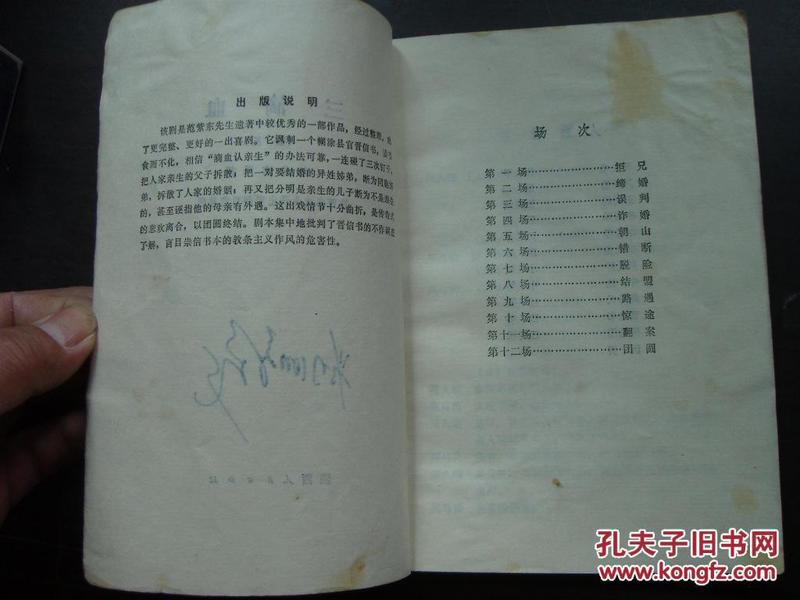 出版说明
该剧是范紫东先生遗著中较优秀的一部作品，经过整理，成
了更完整、更好的一出喜剧。它讽刺一个糊涂县官晋信书，读书
食而不化，相信“滴血认亲生”的办法可靠，一连碰了三次钉子。
把人家亲生的父子拆散；把一对要结婚的异姓姊弟，断为同胞姊
弟，拆散了人家的婚姻；再又把分明是亲生的儿子断为不是亲生
的，甚至诬指他的母亲有外遇。这出戏情节十分曲折，是传奇式
的悲欢离合，以团圆终结。剧本集中地批判了晋信书的不作调查
了解，盲目崇信书本的教条主义作风的危害性。
场次
第一场……………拒兄
第二场……………缔婚
第三场……………误判
第四场……………诈婚
第五场……………朝山
第六场……………错断
第七场……………脱险
第八场……………结盟
第九场……………路遇
第十场……………惊途
第十一场……………翻案
第十二场……………团圆
孔夫子旧书网
www.kongfz.com